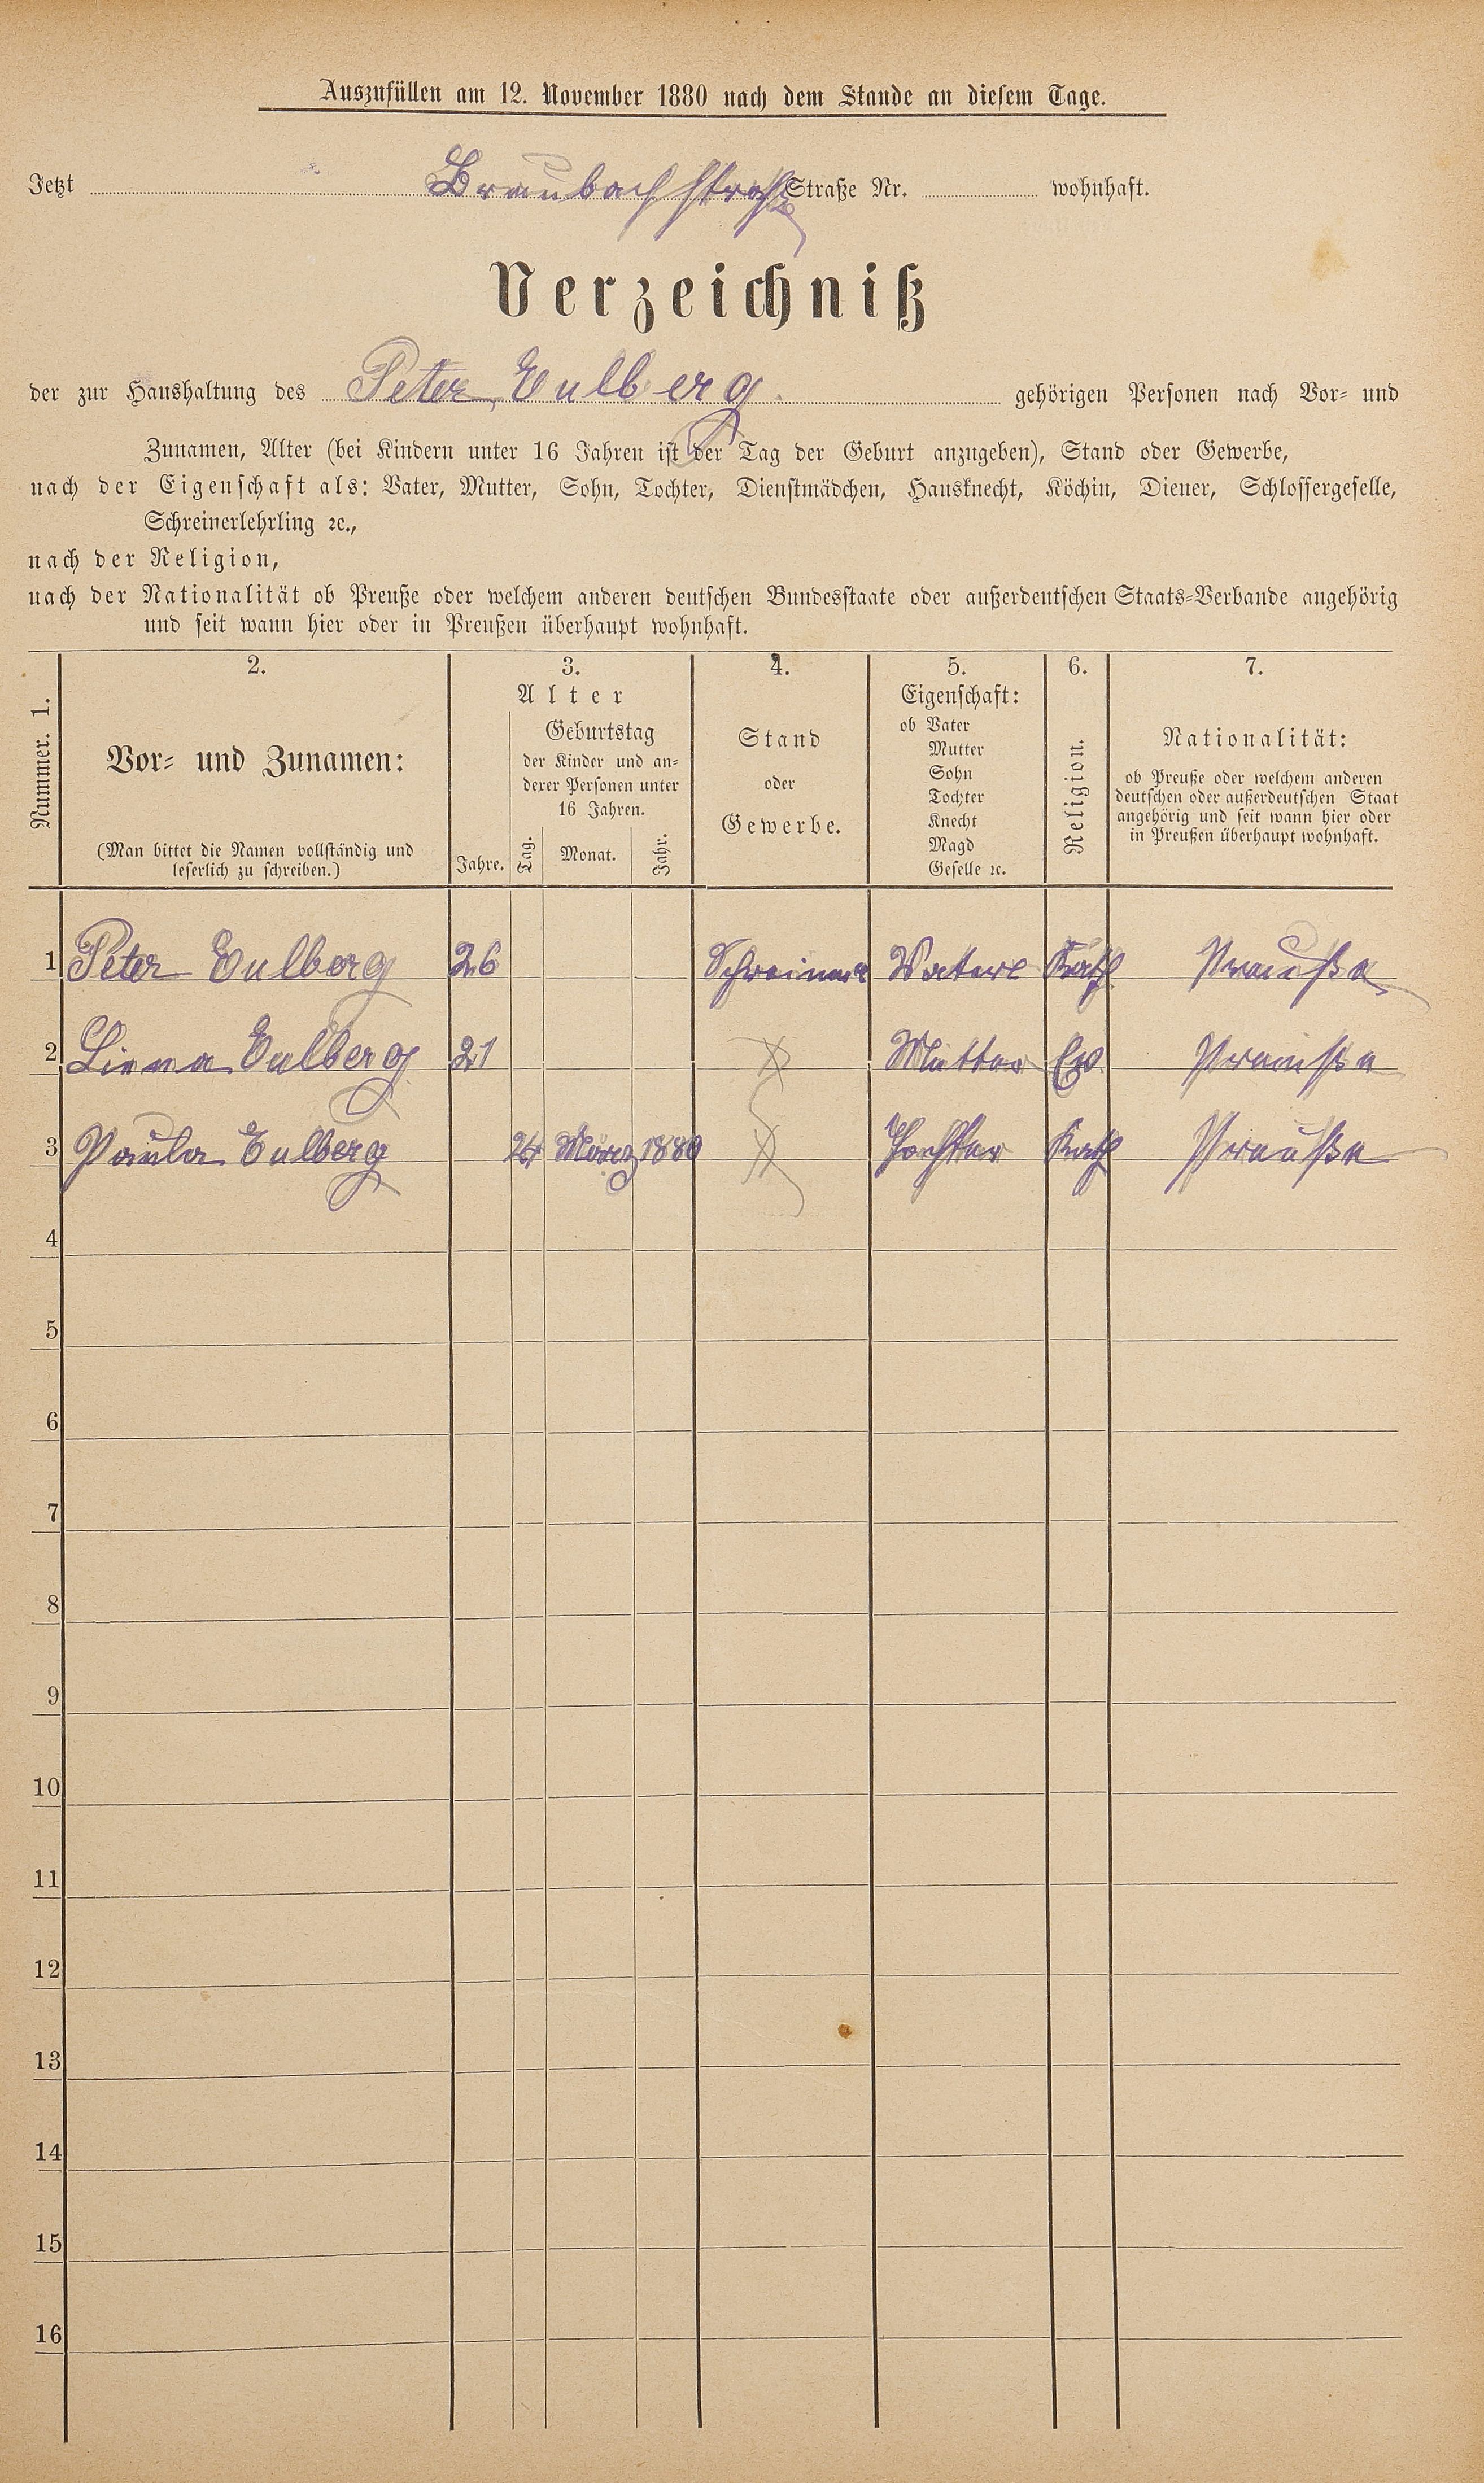 Auszufüllen am 12. November 1880 nach dem Stande an diesem Tage.
Jetzt Braubachstraße Straße Nr. wohnhaft.
Verzeichniß
der zur Haushaltung des Peter Eulberg. gehörigen Personen nach Vor- und
Zunamen, Alter (bei Kindern unter 16 Jahren ist der Tag der Geburt anzugeben), Stand oder Gewerbe,
nach der Eigenschaft als: Vater, Mutter, Sohn, Tochter, Dienstmädchen, Hausknecht, Köchin, Diener, Schlossergeselle,
Schreinerlehrling ꝛc.,
nach der Religion,
nach der Nationalität ob Preuße oder welchem anderen deutschen Bundesstaate oder außerdeutschen Staats-Verbande angehörig
und seit wann hier oder in Preußen überhaupt wohnhaft.
Nummer. 1.
2.
Vor- und Zunamen:
(Man bittet die Namen vollständig und
leserlich zu schreiben.)
3.
Alter
Jahre.
Geburtstag
der Kinder und an-
derer Personen unter
16 Jahren.
Tag. Monat. Jahr.
4.
Stand
oder
Gewerbe.
5.
Eigenschaft:
ob Vater
Mutter
Sohn
Tochter
Knecht
Magd
Geselle ꝛc.
6.
Religion.
7.
Nationalität:
ob Preuße oder welchem anderen
deutschen oder außerdeutschen Staat
angehörig und seit wann hier oder
in Preußen überhaupt wohnhaft.
1 Peter Eulberg 26 Schreiner Vater Kath Preuße
2 Liena Eulberg 21 Mutter Ev Preuße
3 Paula Eulberg März 1880 Tochter Kath Preuße
4
5
6
7
8
9
10
11
12
13
14
15
16